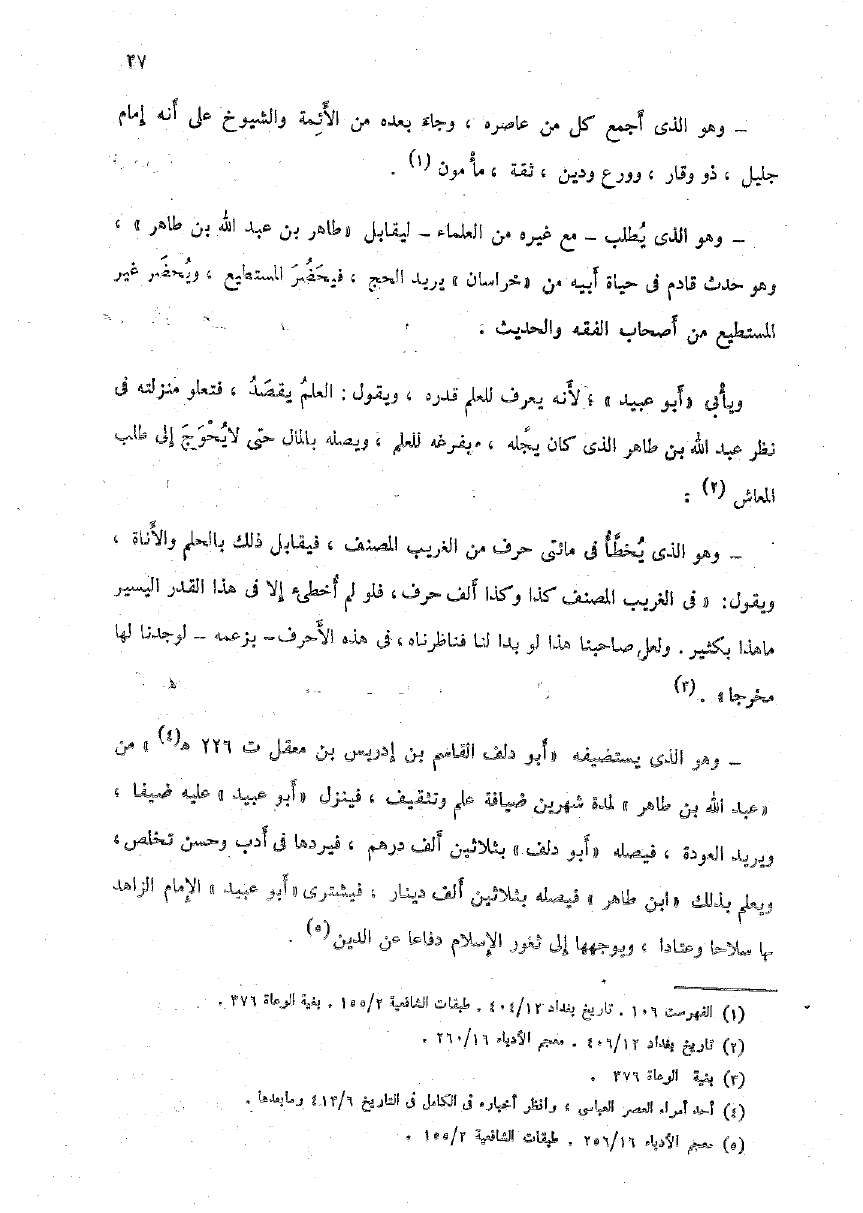 ٣٧
– وهو الذى أجمع كل من عاصره ، وجاء بعده من الأئمة والشيوخ على أنه إمام
جليل ، ذو وقار ، وورع ودين ، ثقة ، مأمون (١) .
– وهو الذى يُطلب – مع غيره من العلماء – ليقابل «طاهر بن عبد الله بن طاهر » ،
وهو حدث قادم فى حياة أبيه من «خراسان » يريد الحج ، فيحَضُرَ المستطيع ، ويُحضَر غير
المستطيع من أصحاب الفقه والحديث .
ويأْبى «أبو عبيد » ؛ لأنه يعرف للعلم قدره ، ويقول : العلمُ يقصَدُ ، فتعلو منزلته فى
نظر عبد الله بن طاهر الذى كان يجِّله ، ويفرغه للعلم ، ويصله بالمال حتى لايُحْوَجَ إلى طلب
المعاش (٢) :
– وهو الذى يُخطَّأُ فى مائتى حرف من الغريب المصنف ، فيقابل ذلك بالحلم والأناة ،
ويقول: « فى الغريب المصنف كذا وكذا ألف حرف ، فلو لم أُخطىء إلا فى هذا القدر اليسير
ماهذا بكثير . ولعل صاحبنا هذا لو بدا لنا فناظرناه ، فى هذه الأحرف– بزعمه – لوجدنا لها
مخرجا» . (٣)
– وهو الذى يستضيفه «أبو دلف القاسم بن إدريس بن معقل ت ٢٢٦ ه(٤) » من
«عبد الله بن طاهر » لمدة شهرين ضيافة علم وتثقيف ، فينزل «أبو عبيد » عليه ضيفا ،
ويريد العودة ، فيصله «أبو دلف » بثلاثين ألف درهم ، فيردها فى أدب وحسن تخلص ،
ويعلم بذلك «ابن طاهر » فيصله بثلاثين ألف دينار ، فيشترى «أبو عبيد » الإمام الزاهد
بها سلاحا وعتادا ، ويوجهها إلى ثغور الإسلام دفاعا عن الدين (٥) .
(١) الفهرست ١٠٦ . تاريخ بغداد ٤٠٤/١٢ . طبقات الشافعية ١٥٥/٢ . بغية الوعاة ٣٧٦ .
(٢) تاريخ بغداد ٤٠٦/١٢ . معجم الأدباء ٢٦٠/١٦ .
(٣) بغية الوعاة ٣٧٦ .
(٤) أحد أمراء العصر العباسى ، وانظر أخباره فى الكامل فى التاريخ ٤١٣/٦ ومابعدها .
(٥) معجم الأدباء ٢٥٦/١٦ . طبقات الشافعية ١٥٥/٢ .